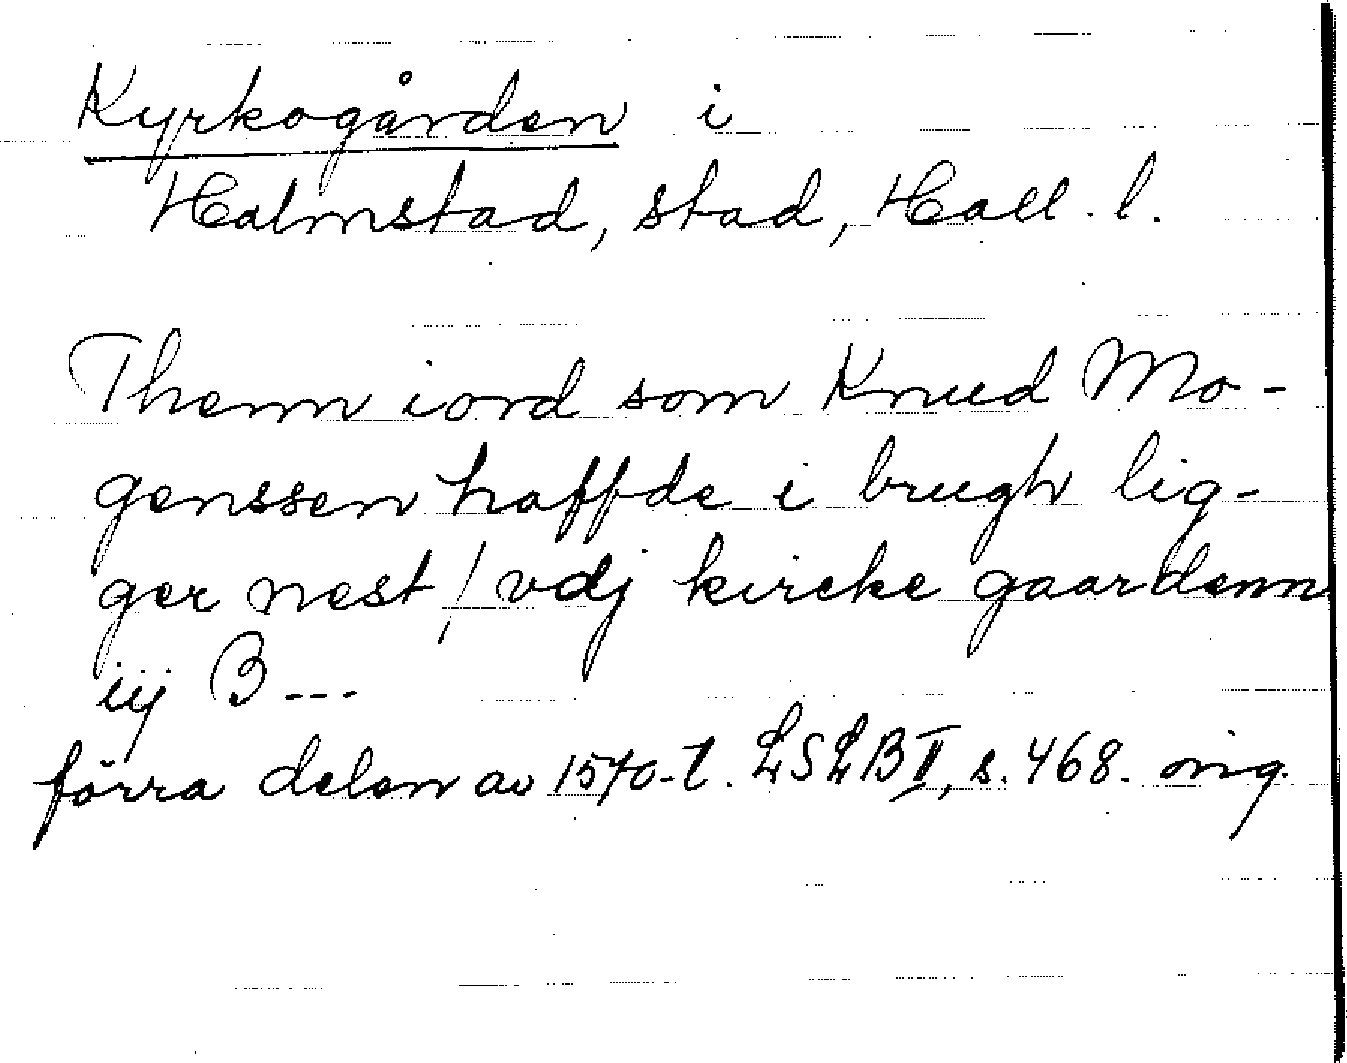 Kyrkogården i
Halmstad, stad, Hall. l.
Thenn iord som Knud Mo-
genssen haffde i brugh lig-
ger nest / vdj kircke gaardenn
iij B ---
förra delen av 1570-t. LSLB II, s. 468. orig.